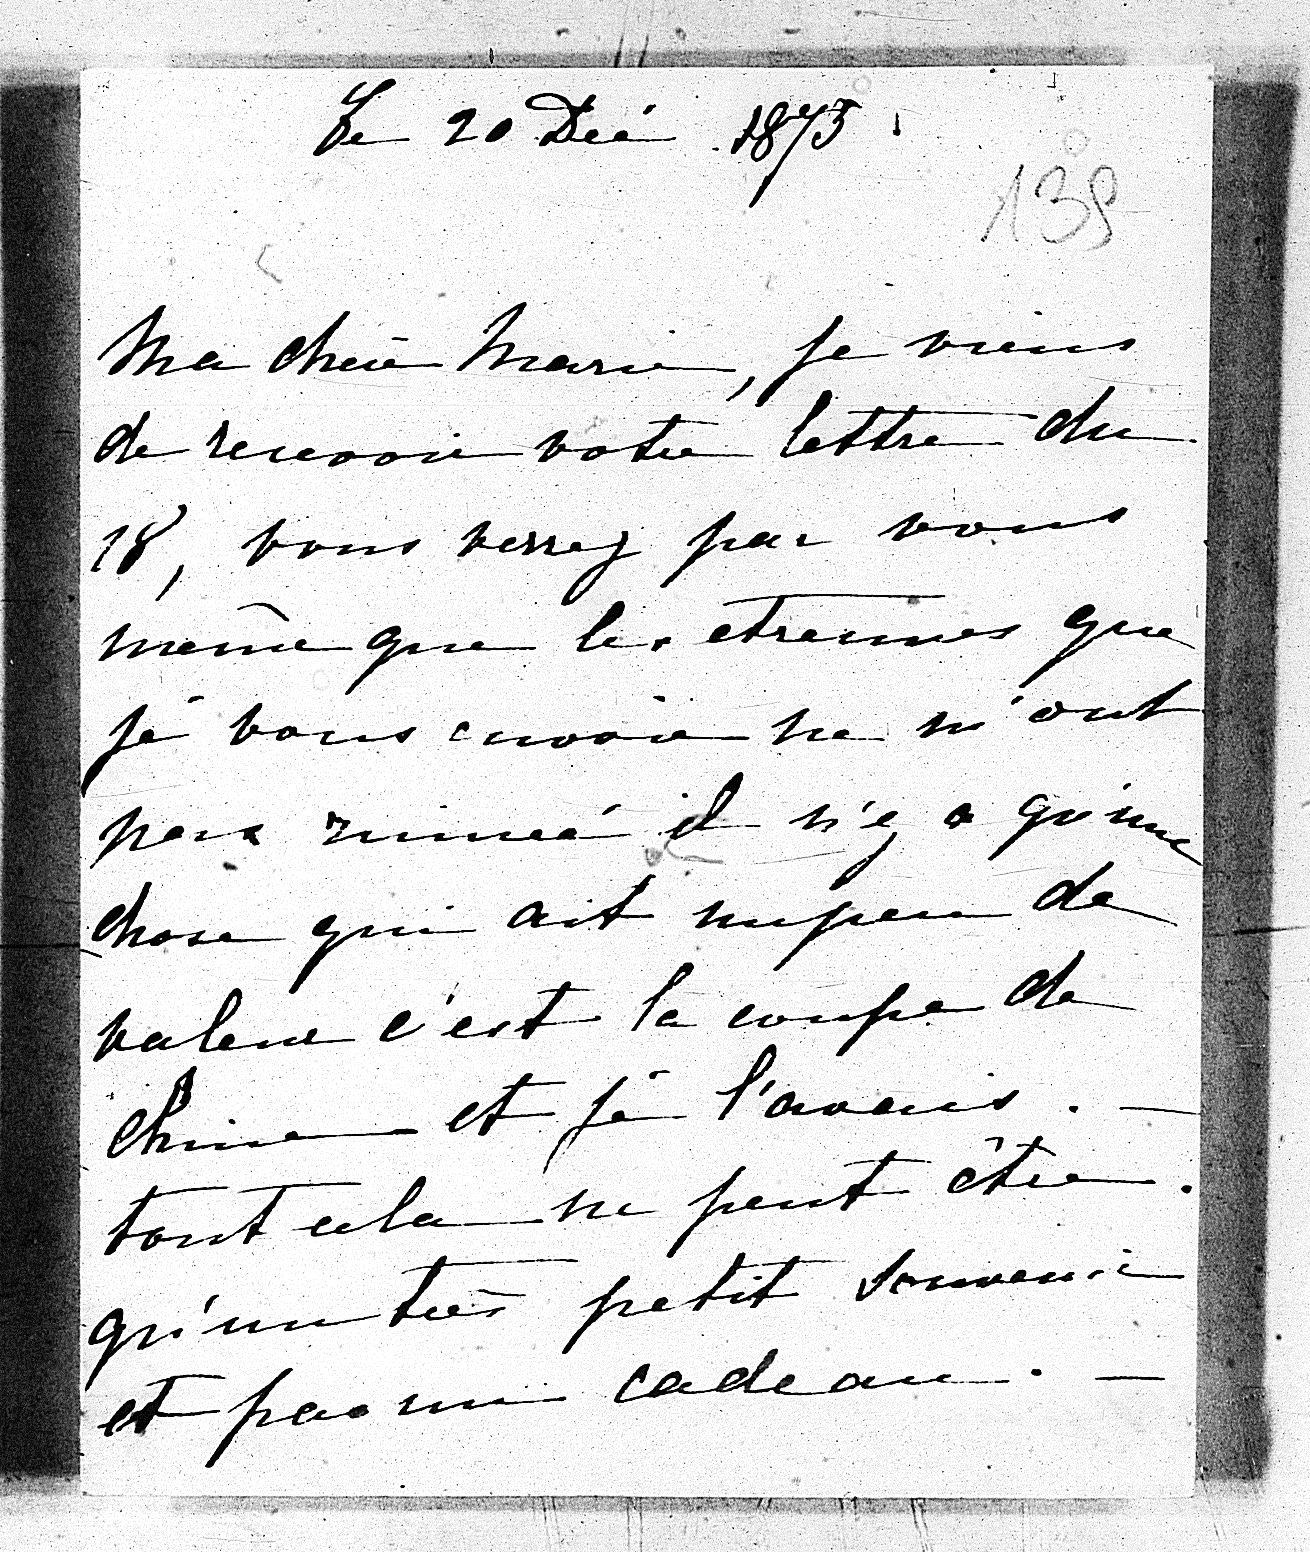 Le 20 Déc 1875.
139
Ma chère Marie, je viens
de recevoir votre lettre du
18, vous verrez par vous
même que les etrennes que
je vous envoie ne m'ont
pas ruineé il n'y a qu'une
chose qui ait un peu de
valeur c'est la coupe de
chine et je l'avais. —
tout cela ne peut être
qu'un très petit souvenir
et pas un cadeau. —